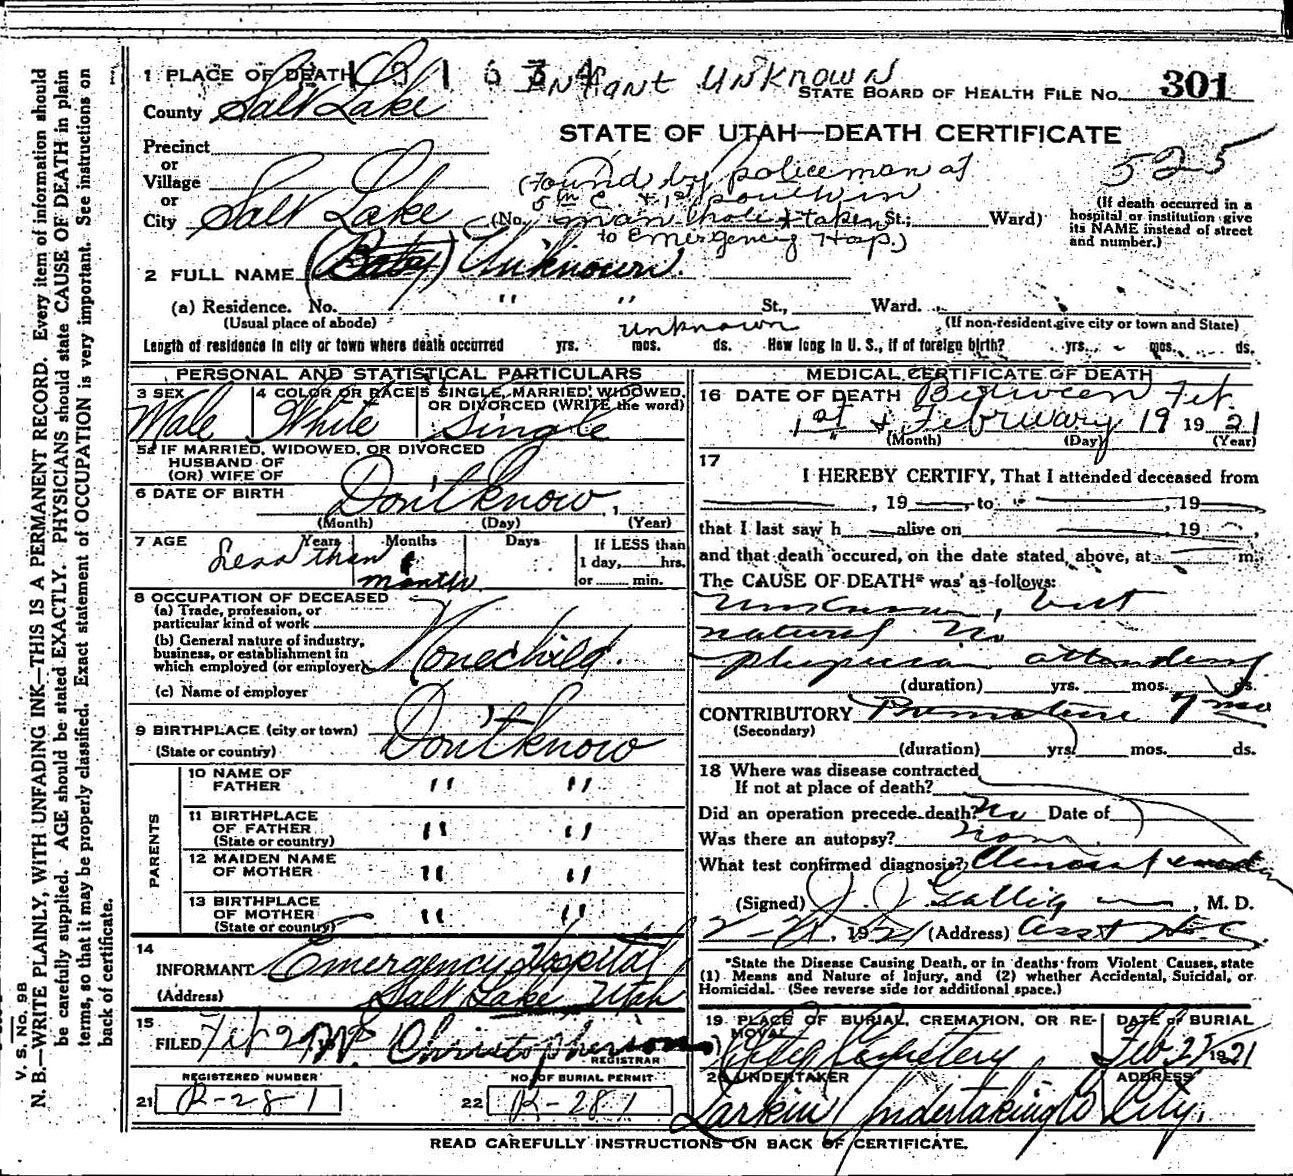 V. S. No. 9B
N. B.—WRITE PLAINLY, WITH UNFADING INK—THIS IS A PERMANENT RECORD. Every item of information should
be carefully supplied. AGE should be stated EXACTLY. PHYSICIANS should state CAUSE OF DEATH in plain
terms, so that it may be properly classified. Exact statement of OCCUPATION is very important. See instructions on
back of certificate.
Infant Unknown
1 PLACE OF DEATH
STATE BOARD OF HEALTH FILE No. 301
County Salt Lake
STATE OF UTAH—DEATH CERTIFICATE
525
Precinct
or
Village
(Found by policeman at
5th & 1st South in
or
City Salt Lake (No. man hole & taken St.; Ward)
to Emergency Hosp.)
(If death occurred in a
hospital or institution give
its NAME instead of street
and number.)
2 FULL NAME (Baby) Unknown.
(a) Residence. No. " " St., Ward.
(Usual place of abode) (If non-resident give city or town and State)
unknown
Length of residence in city or town where death occurred yrs. mos. ds. How long in U. S., if of foreign birth? yrs. mos. ds.
PERSONAL AND STATISTICAL PARTICULARS
3 SEX Male
4 COLOR OR RACE White
5 SINGLE, MARRIED, WIDOWED,
OR DIVORCED (WRITE the word)
Single
5a IF MARRIED, WIDOWED, OR DIVORCED
HUSBAND OF
(OR) WIFE OF
6 DATE OF BIRTH Don't know
(Month) (Day) (Year)
7 AGE Years Months Days If LESS than
1 day, hrs.
or min.
Less than
months
8 OCCUPATION OF DECEASED
(a) Trade, profession, or
particular kind of work
(b) General nature of industry,
business, or establishment in
which employed (or employer)
None child.
(c) Name of employer
9 BIRTHPLACE (city or town)
(State or country) Don't know
PARENTS
10 NAME OF
FATHER " "
11 BIRTHPLACE
OF FATHER " "
(State or country)
12 MAIDEN NAME
OF MOTHER " "
13 BIRTHPLACE
OF MOTHER " "
(State or country)
14
INFORMANT Emergency Hospital
(Address) Salt Lake, Utah
15
FILED Feb Christopherson
REGISTRAR
REGISTERED NUMBER
21 R-281
NO. OF BURIAL PERMIT
22 R-281
MEDICAL CERTIFICATE OF DEATH
16 DATE OF DEATH Between Feb.
1st & February 19 1921
(Month) (Day) (Year)
17
I HEREBY CERTIFY, That I attended deceased from
, 19 , to , 19
that I last saw h alive on , 19 ,
and that death occured, on the date stated above, at m.
The CAUSE OF DEATH* was as follows:
Unknown, but
natural. No
physician attending
(duration) yrs. mos. ds.
CONTRIBUTORY Premature 7 mo
(Secondary)
(duration) yrs. mos. ds.
18 Where was disease contracted
If not at place of death?
Did an operation precede death? No Date of
Was there an autopsy?
What test confirmed diagnosis?
(Signed) J. J. Galligan, M. D.
1921 (Address) Asst
*State the Disease Causing Death, or in deaths from Violent Causes, state
(1) Means and Nature of Injury, and (2) whether Accidental, Suicidal, or
Homicidal. (See reverse side for additional space.)
19 PLACE OF BURIAL, CREMATION, OR RE-
MOVAL
City Cemetery
DATE of BURIAL
Feb 1921
20 UNDERTAKER
Larkin Undertaking Co
ADDRESS
City.
READ CAREFULLY INSTRUCTIONS ON BACK OF CERTIFICATE.